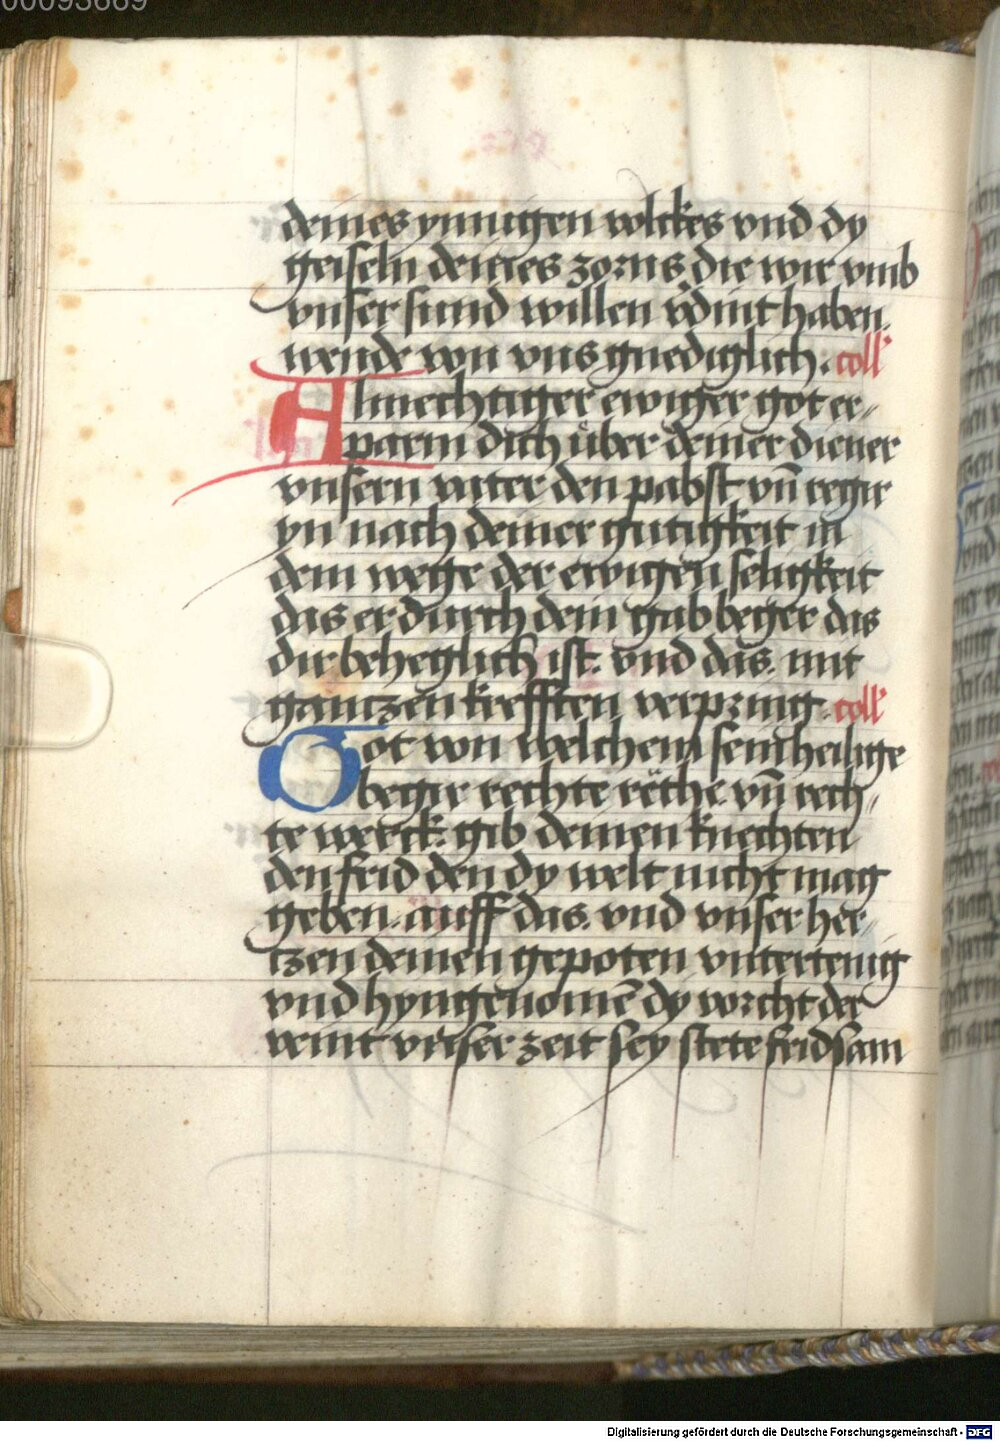 00093669
deines ynnigen volckes vnd dy
geiseln deines zorns die wir vmb
vnser sund willen v̓dint haben.
wende von vns gnediglich. coll'
Almechtiger ewiger got er„
parm dich über deiner diener
vnsern vater den pabst vn̄ regir
yn nach deiner gutigkeit in
dem wege der ewigen seligkeit
das er durch dein gab beger das
dir beheglich ist. vnd das. mit
gantzen krefften verpring. coll'
Got von welchem sein heilige
begir rechte rëthe. vn̄ rech„
te werck. gib deinen knechten
den frid den dy welt nicht mag
geben. auff das. vnd vnser her„
tzen deinen gepoten vntertenig
vnd hyngenomē dy vorcht der
veint vnser zeit sey stete fridsam
Digitalisierung gefördert durch die Deutsche Forschungsgemeinschaft - DFG